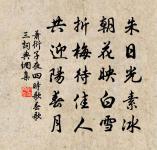 朱日光素冰
朝花映白雪
折梅待佳人
共迎陽春月
蕭衍子夜四時歌春歌
三詞典網集